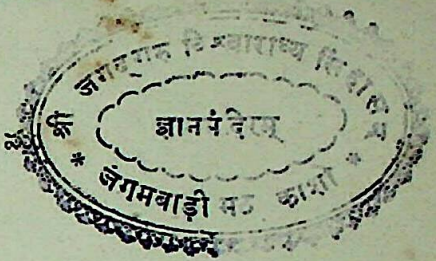 श्री जगद्गुरु विश्वाराध्य
ज्ञानमंदिर
* जगमबाड़ी मठ काशी *